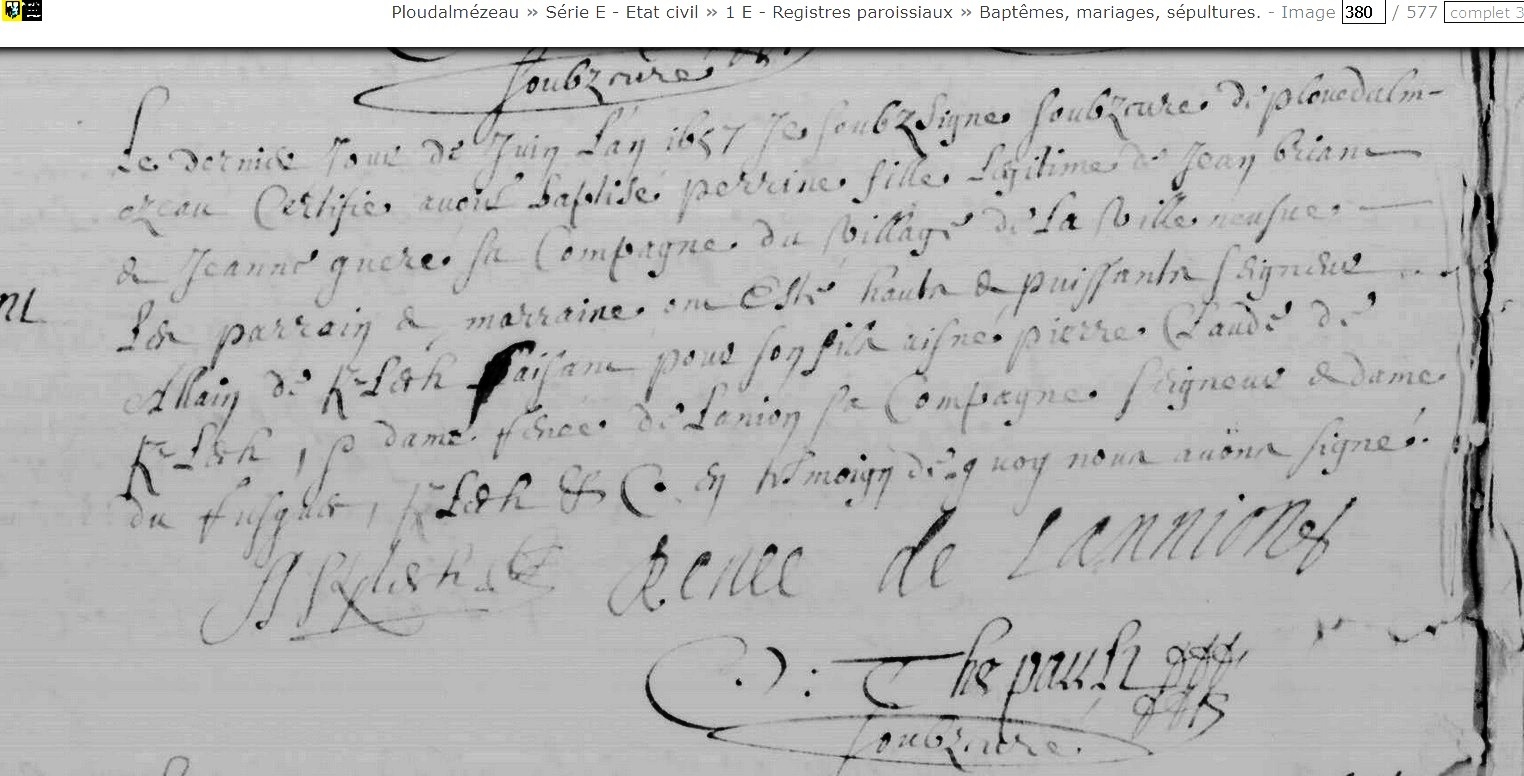 Ploudalmézeau » Série E - Etat civil » 1 E - Registres paroissiaux » Baptêmes, mariages, sépultures. - Image 380 / 577 complet 3
soubzcuré
Le dernier Jour de Juin L'an 1657 Je soubzsigne soubzcure de plouedalm-
ezeau Certifie avoir baptisé perrine fille Legitime de Jean briant
& Jeanne guere sa Compagne du village de La ville neufue
Les parrain & marraine ont Esté haults & puissants seigneur
Allain de K/Lech faisant pour son fils aisné pierre Claude de
K/Lech, & dame renee de Lanion sa Compagne seigneur & dame
du rusques, K/Lech & C. en tesmoign de quoy nous avons signé.
A K/lech
Renee de Lannion
: Thepault
soubzcuré.